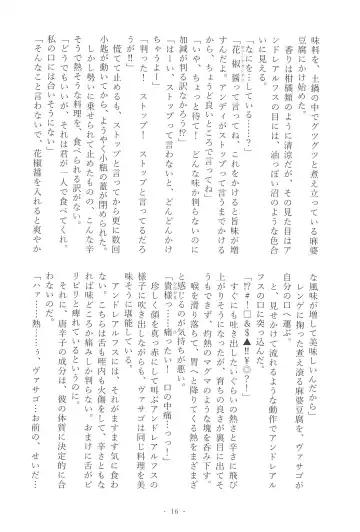 味料を、土鍋の中でグツグツと煮え立っている麻婆
豆腐にかけ始めた。
香りは柑橘類のように清涼だが、その見た目はア
ンドレアルフスの目には、油っぽい沼のような色合
いに見える。
「なにを……している……？」
「花椒醤って言ってね、これをかけると旨味が増
すんだよ。アンディがストップって言うまでかける
から、ちょうど良いところで言ってね」
「いや、ちょっと待て、どんな味か判らないのに
加減が判る訳なかろう⁉」
「はーい、ストップって言わないと、どんどんかけ
ちゃうよー」
「判った！　ストップ！　ストップと言ってるだろ
うが‼」
慌てて止めるも、ストップと言ってから更に数回
小匙が動いてから、ようやく小瓶の蓋が閉められた。
しかし勢いに乗せられて止めたものの、こんな辛
そうで熱そうな料理を、食べられる訳がない。
「どうでもいいが、それは君が一人で食べてくれ、
私の口には合いそうにない」
「そんなこと言わないで、花椒醤を入れると爽やか
な風味が増して美味しいんだから」
レンゲに掬った煮え滾る麻婆豆腐を、ヴァサゴが
自分の口へ運ぶ。
と、見せかけて流れるような動作でアンドレアル
フスの口に突っ込んだ。
「⁉＃！□＆＄▲‼￥◎？」
すぐにも吐き出したいぐらいの熱さと辛さに飛び
上がりそうになったが、育ちの良さが裏目に出てそ
うもできず、灼熱のマグマのような塊を呑み下す。
喉を滑り落ちて、胃へと降りてくる熱をまざまざ
と感じるのが気持ちが悪い。
「貴様っ……痛っ！　口の中痛……っっ！」
珍しく顔を真っ赤にして、叫ぶアンドレアルフスの
様子に吹き出しながらも、ヴァサゴは同じ料理を美
味そうに堪能している。
アンドレアルフスには、それがますます気に食わ
ない。こちらは舌も咥内も火傷をして、辛さと痛け
れば味どころか痛みしか判らない。おまけに舌がピ
リピリと痺れているというのに。
それに、唐辛子の成分は、彼の体質に決定的に合
わないのだ。
「ハァ……熱……ぅ、ヴァサゴ……お前の、せいだ…
- 16 -